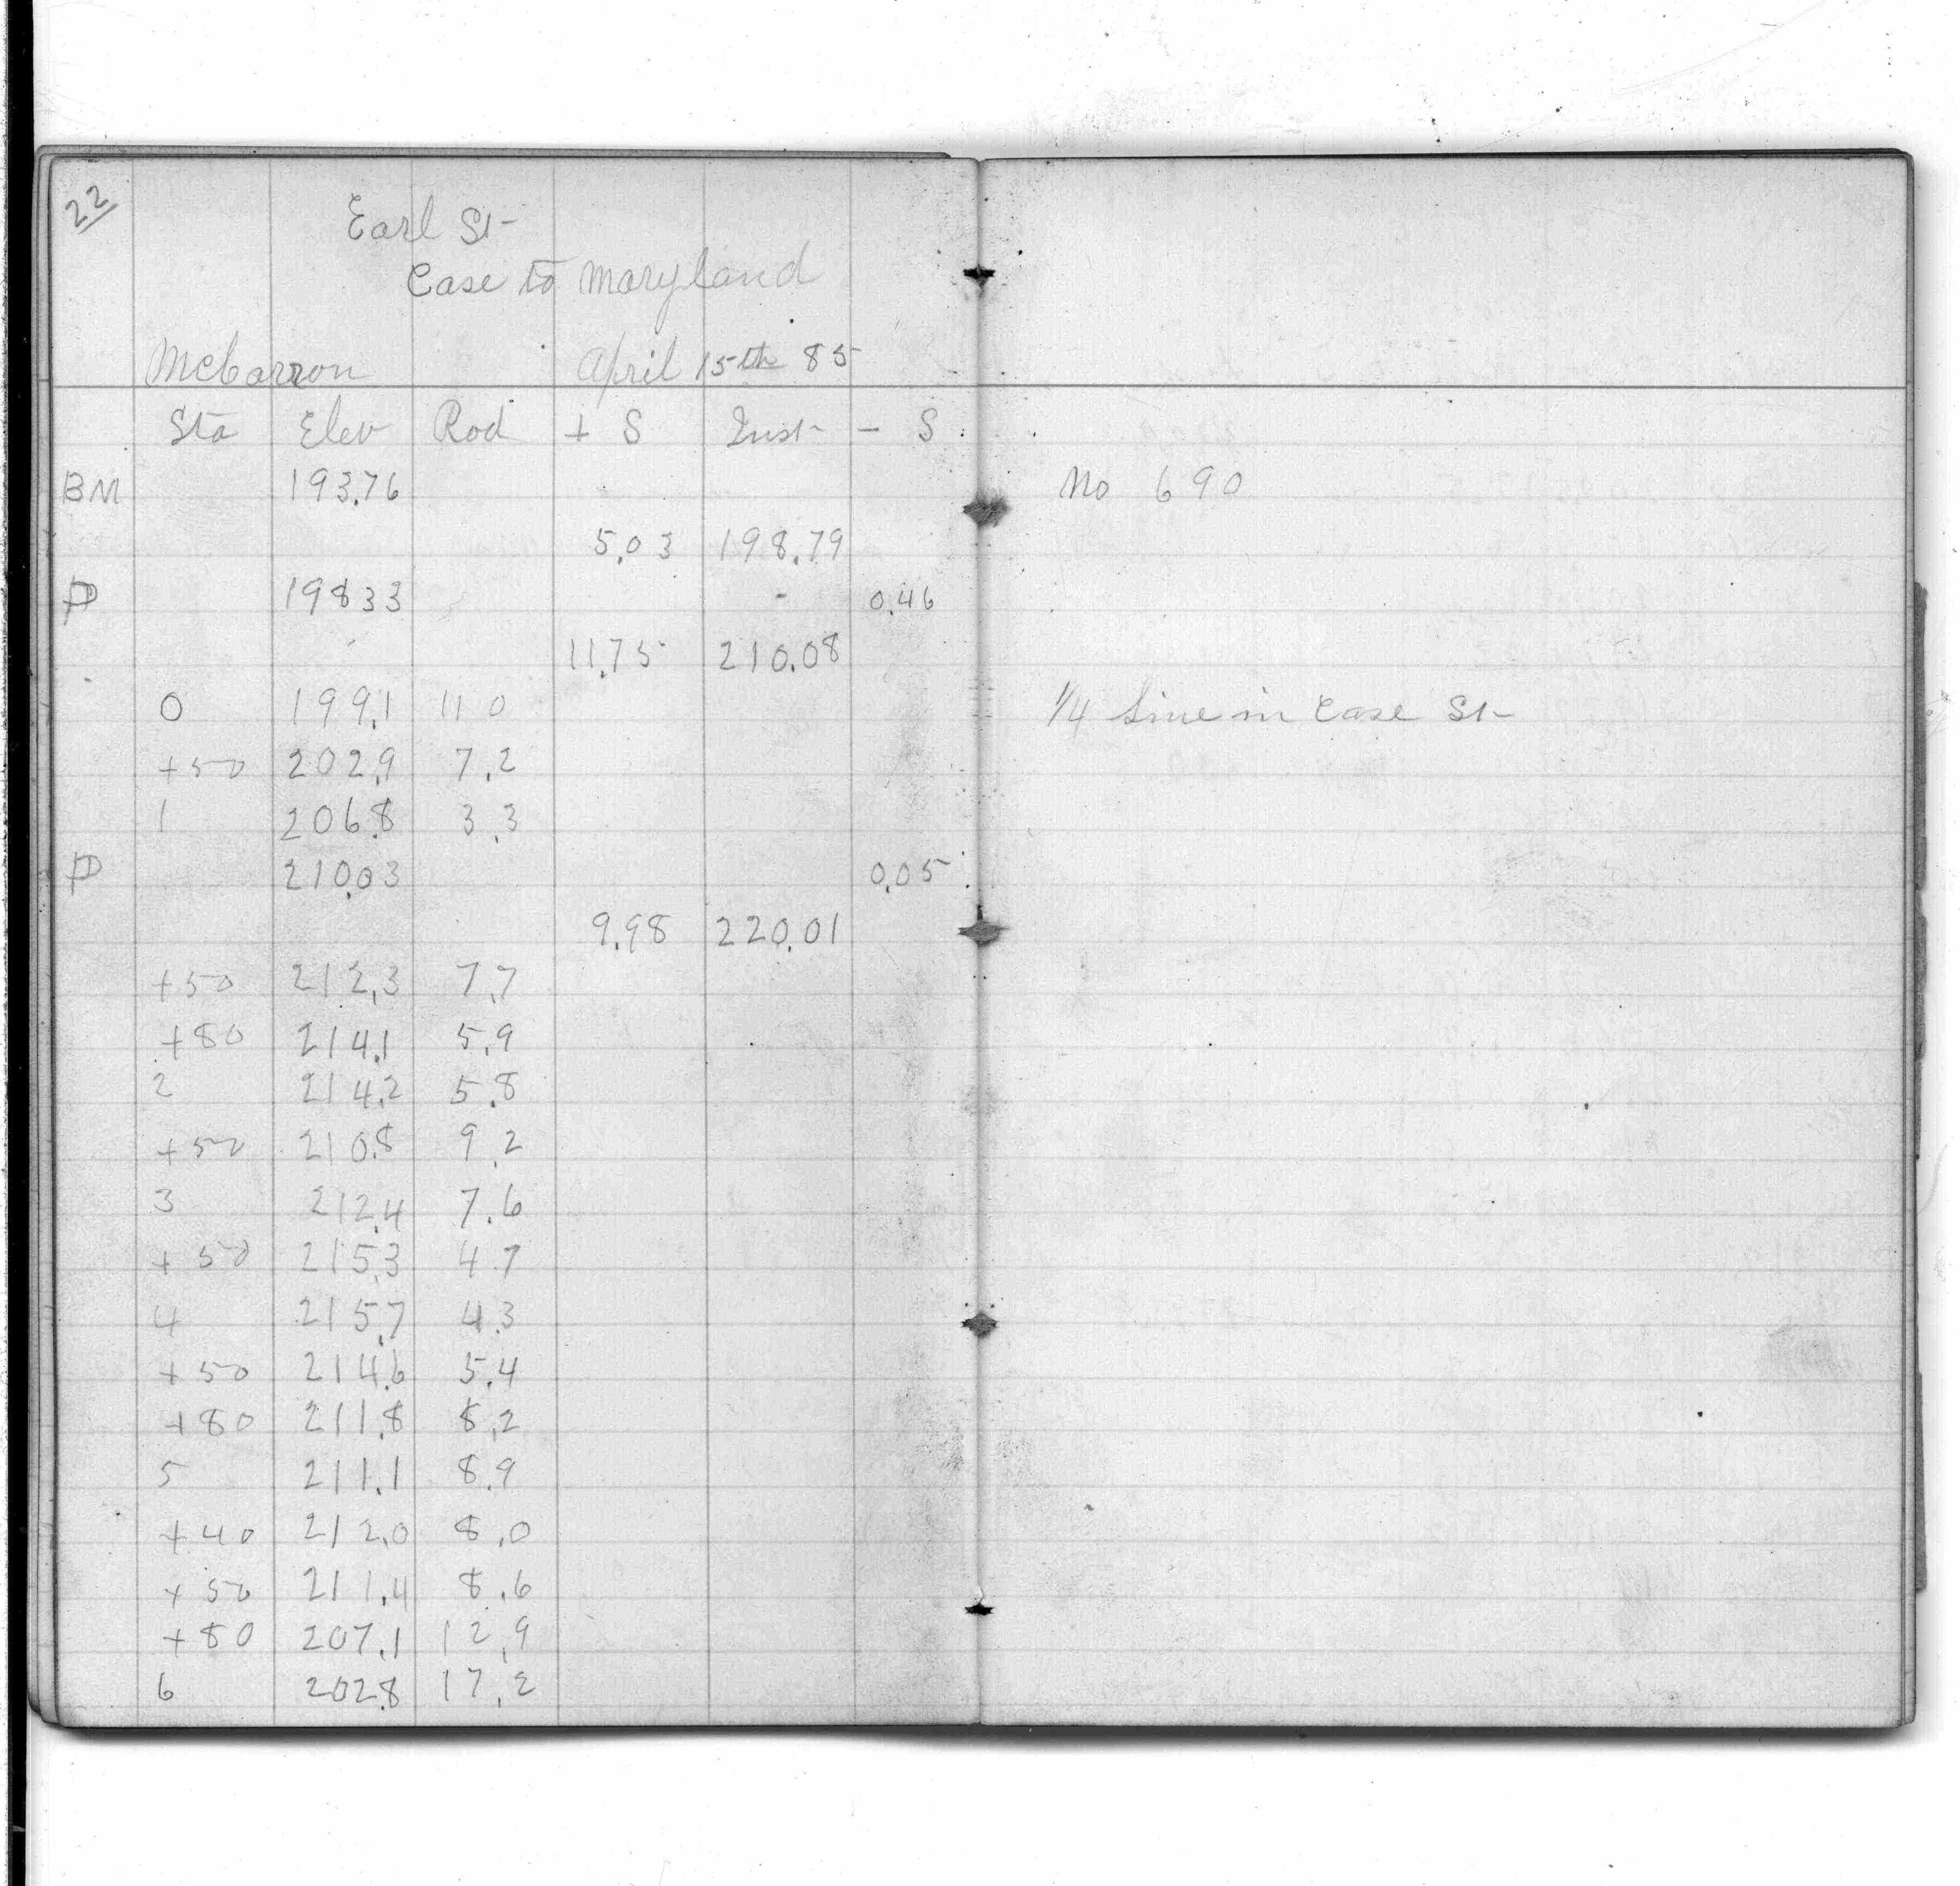 22
Earl St
Case to Maryland
McCarron April 15th 85
Sta Elev Rod + S Inst - S
BM 193.76 No 690
5.03 198.79
P 19833 0.46
11.75 210.08
0 199.1 11 0 1/4 Line in Case St
+50 202.9 7.2
1 206.8 3.3
P 210.03 0.05
9.98 220.01
+50 212.3 7.7
+80 214.1 5.9
2 214.2 5.8
+50 210.8 9.2
3 212.4 7.6
+50 215.3 4.7
4 215.7 4.3
+50 214.6 5.4
+80 211.8 8.2
5 211.1 8.9
+40 212.0 8.0
+50 211.4 8.6
+80 207.1 12.9
6 202.8 17.2